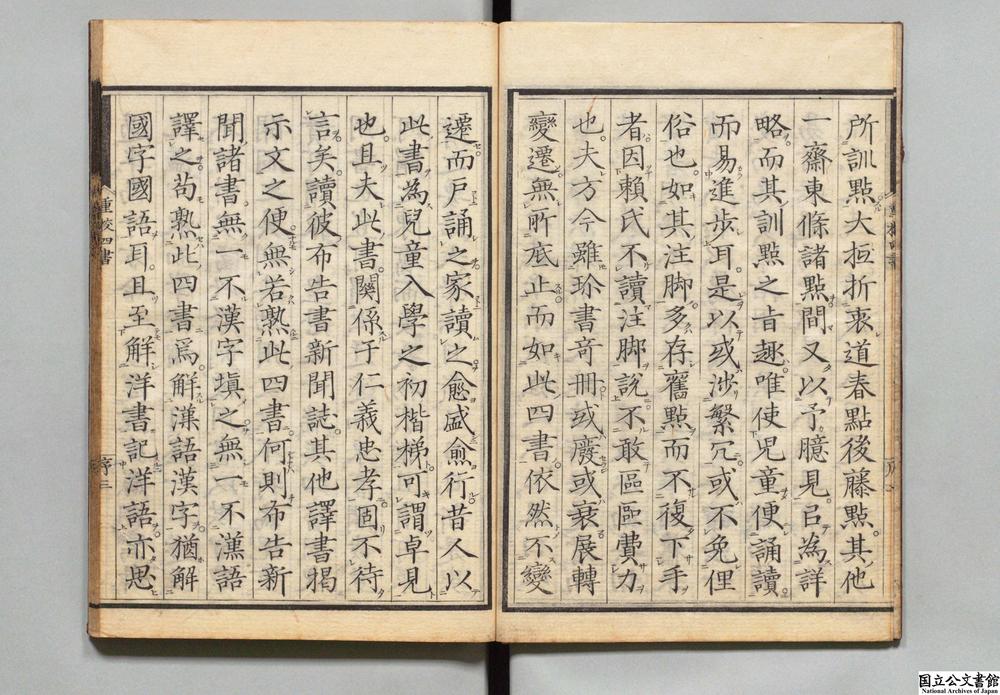 所訓點大抵折衷道春點後藤點其他
一齋東條諸點間又以予臆見㠯為詳
略而其訓點之旨趣唯使兒童便誦讀
而易進步耳是以或涉繁冗或不免俚
俗也如其注脚多存舊點而不復下手
者因賴氏不讀注脚說不敢區區費力
也夫方今雖珍書奇冊或廢或衰展轉
變遷無所底止而如此四書依然不變
遷而戶誦之家讀之愈盛愈行昔人以
此書為兒童入學之初楷梯可謂卓見
也且夫此書關係于仁義忠孝固不待
言矣讀彼布告書新聞誌其他譯書揭
示文之便無若熟此四書何則布告新
聞諸書無一不漢字塡之無一不漢語
譯之苟熟此四書焉解漢語漢字猶解
國字國語耳且至解洋書記洋語亦思
重校四書
序二
国立公文書館
National Archives of Japan